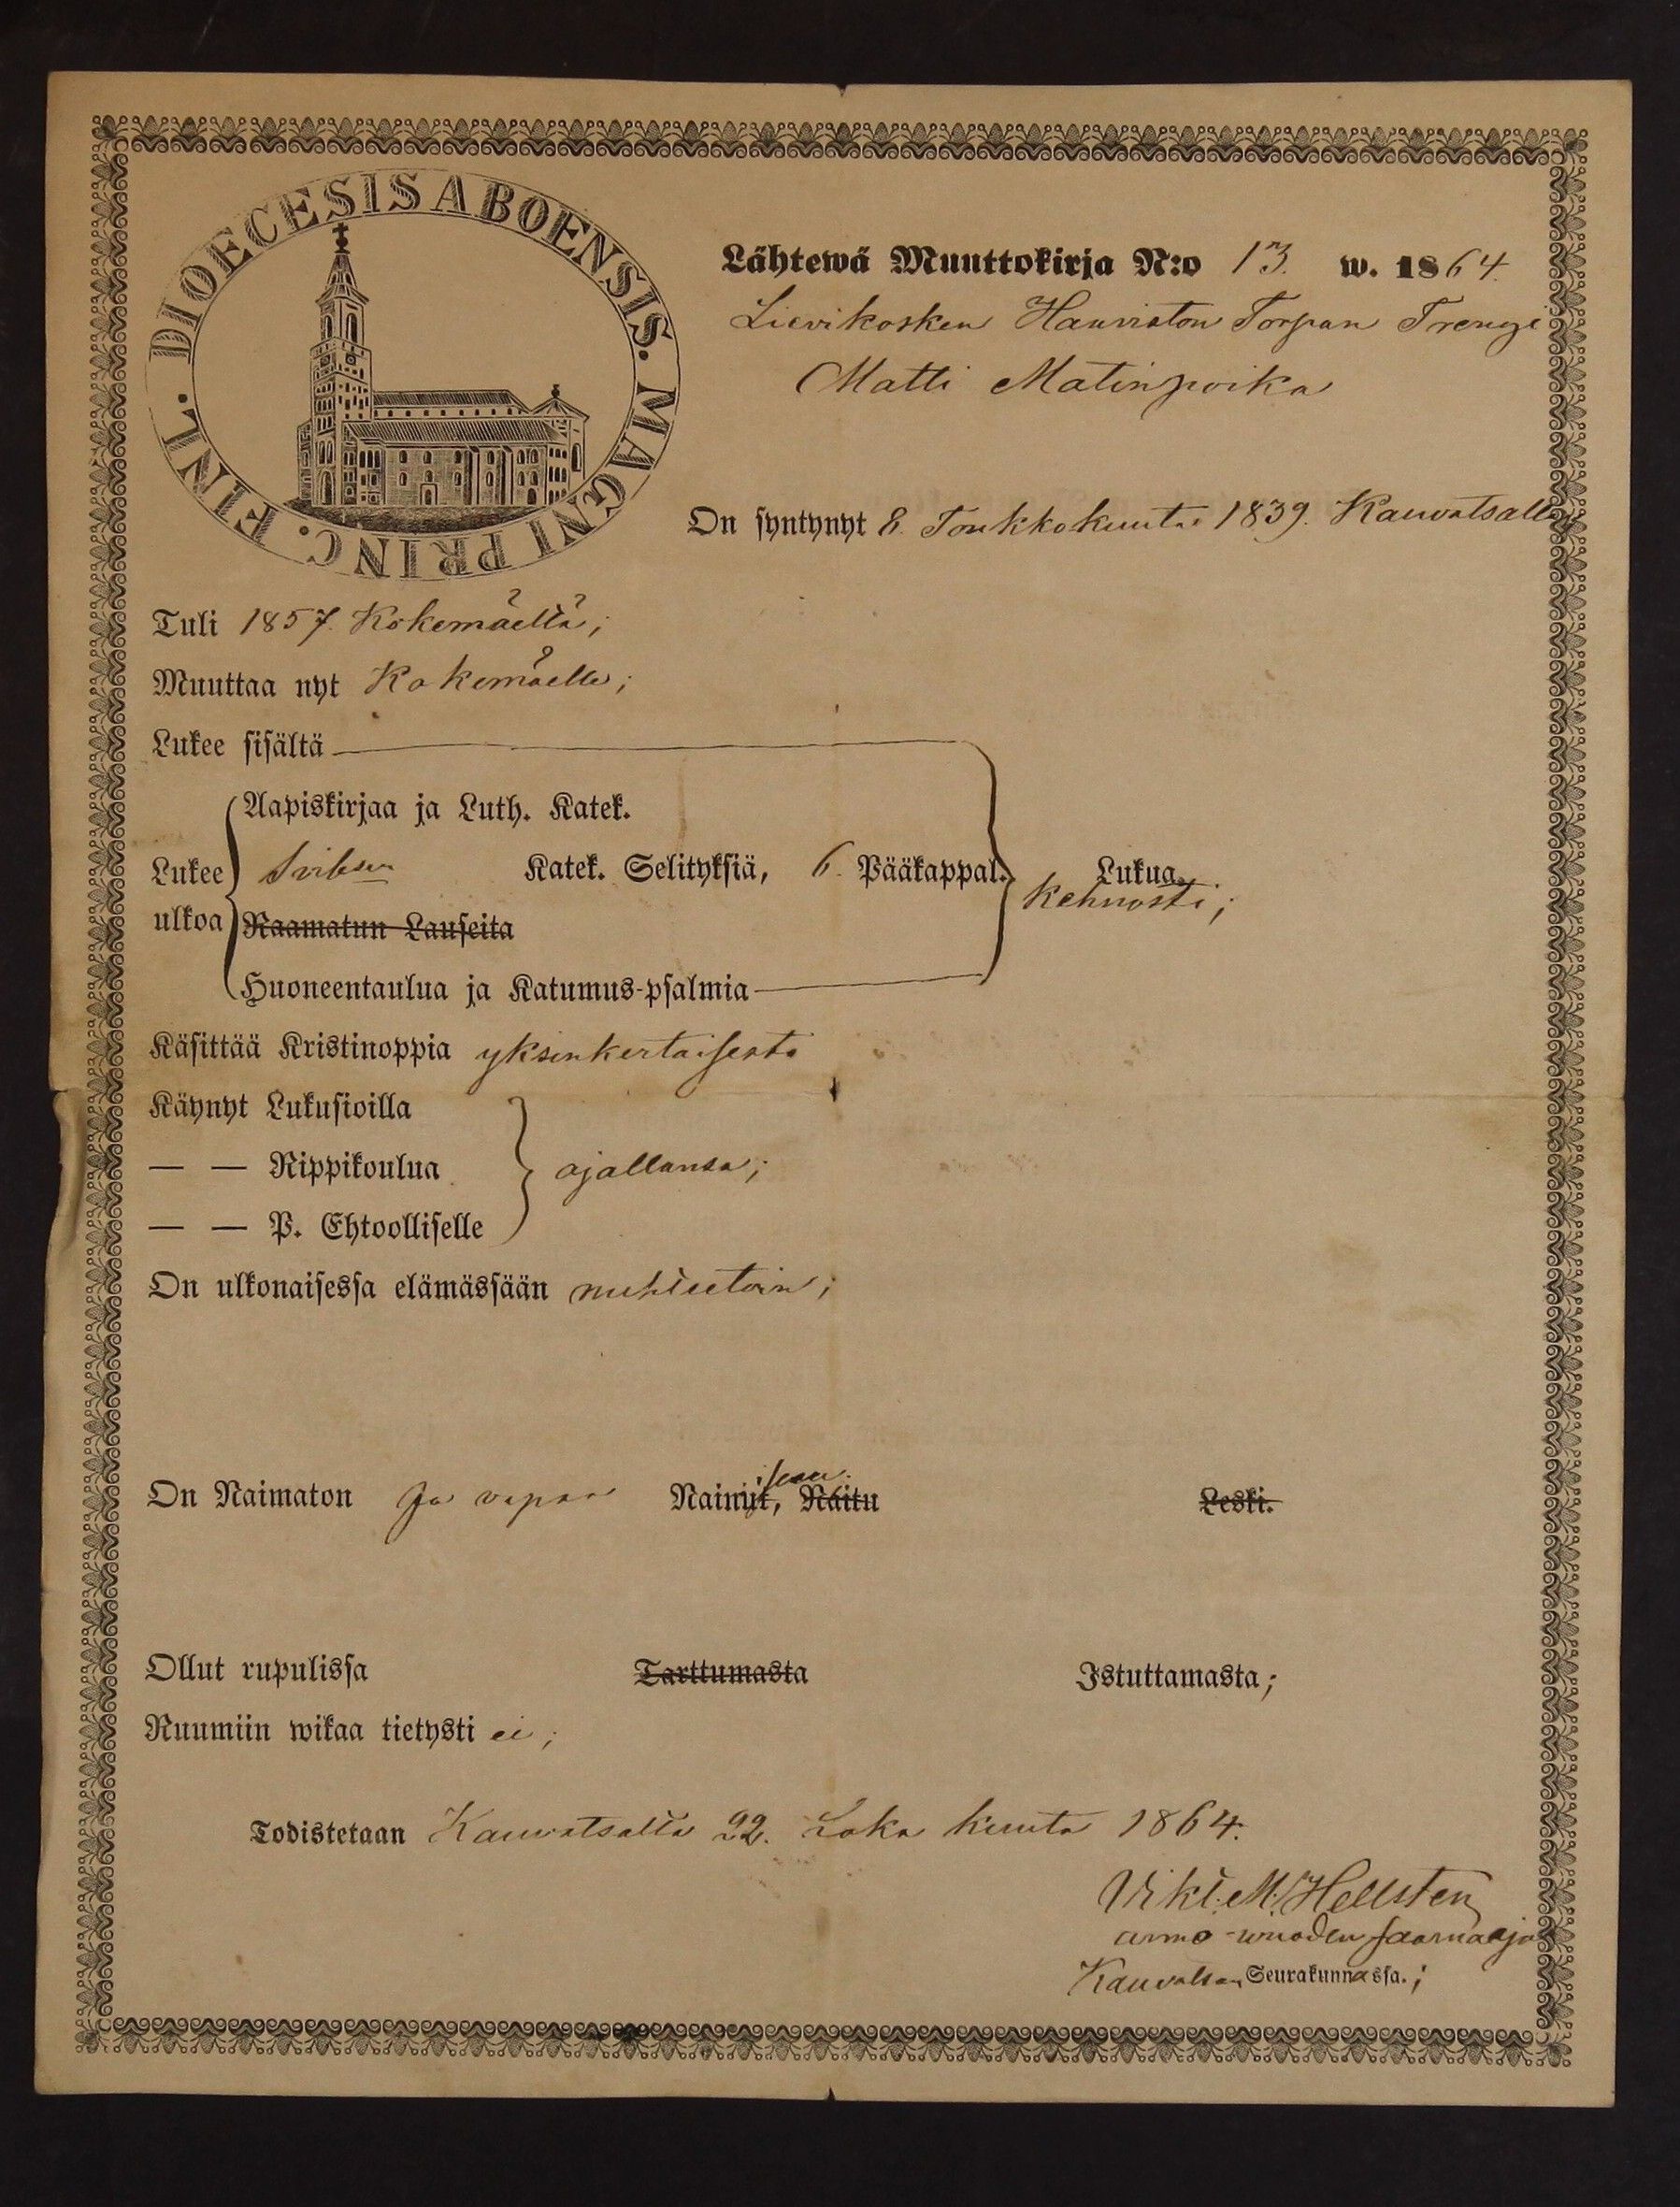 DIOECESIS ABOENSIS. MAGNI PRINC. FINL.
Lähtewä Muuttokirja N:o 13. w. 1864.
Lievikosken Torpan Trengi
Matti Matinpoika
On syntynyt 8. Toukkokuuta 1839. Kauvatsalla
Tuli 1857. Kokemäeltä;
Muuttaa nyt Kokemäelle;
Lukee sisältä
Aapiskirjaa ja Luth. Katek.
Lukee Katek. Selityksiä, 6. Pääkappal. Lukua.
kehnosti;
ulkoa Raamatun Lauseita
Huoneentaulua ja Katumus-psalmia
Käsittää Kristinoppia yksinkertaisesti
Käynyt Lukusioilla
— — Rippikoulua ajallansa;
— — P. Ehtoolliselle
On ulkonaisessa elämässään nuhteetoin;
On Naimaton ja vapaa Nainut, Naitu Leski.
Ollut rupulissa Tarttumasta Istuttamasta;
Ruumiin wikaa tietysti ei;
Todistetaan Kauvatsalla 22. Loka kuuta 1864.
M. Hellsten
armo-wuoden saarnaaja
Kauvatsan Seurakunnassa.;